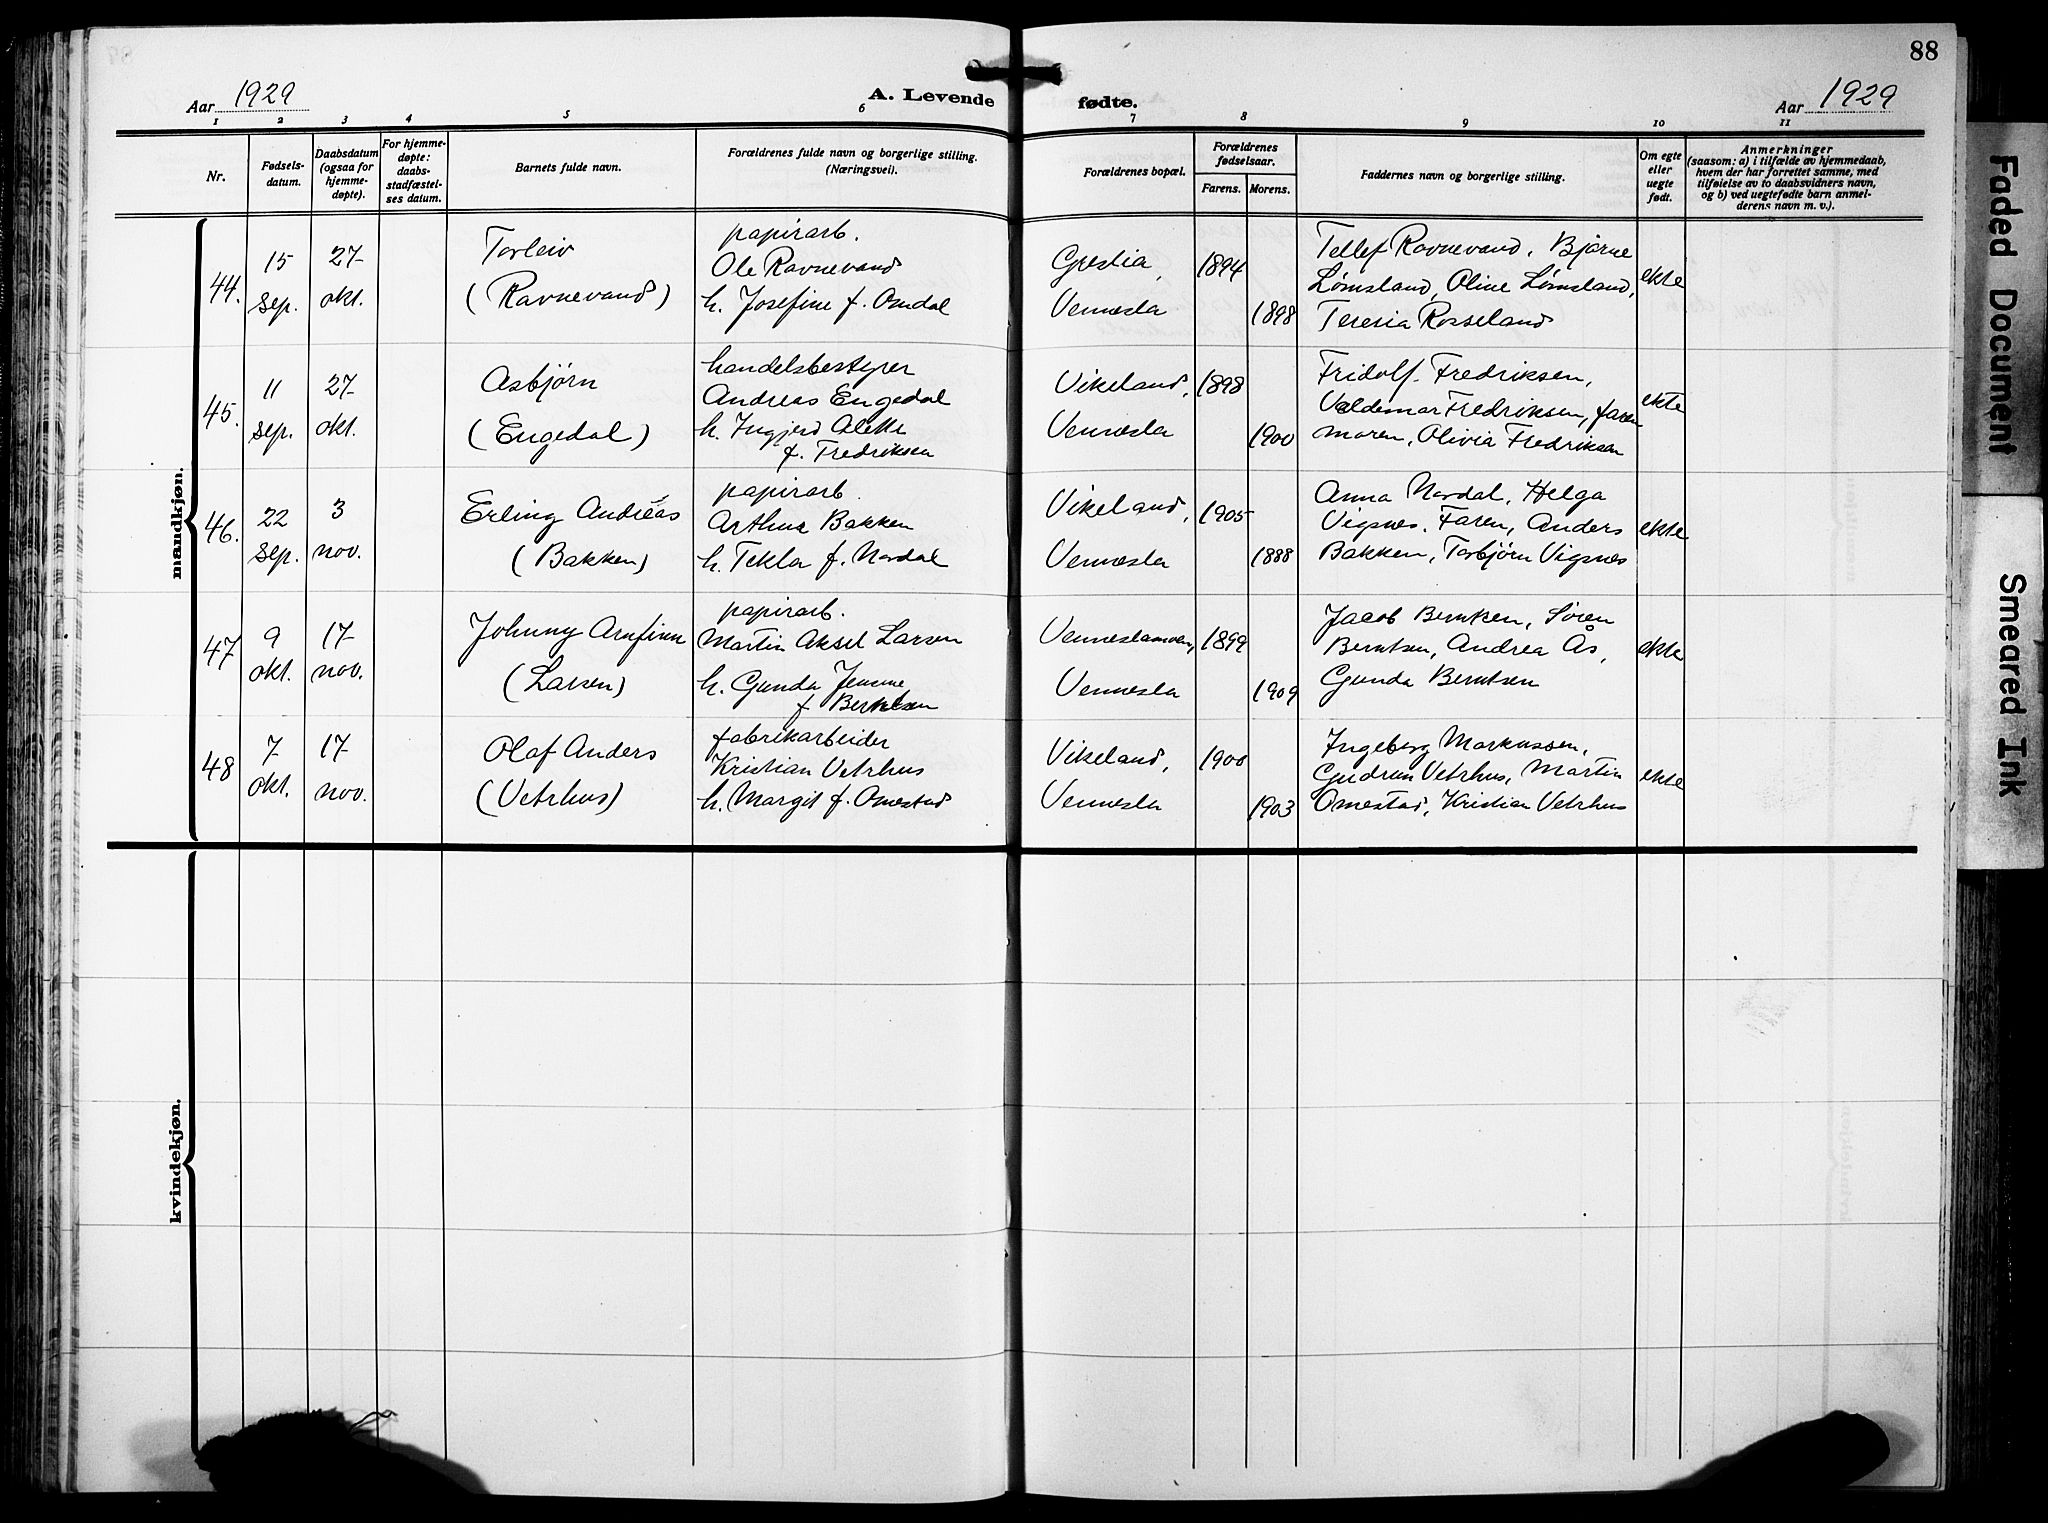 88
Aar 1929
A. Levende fødte.
Aar 1929
1 2 3 4 5 6 7 8 9 10 11
Nr.
Fødsels-
datum.
Daabsdatum
(ogsaa for
hjemme-
døpte).
For hjemme-
døpte:
daabs-
stadfæstel-
ses datum.
Barnets fulde navn.
Forældrenes fulde navn og borgerlige stilling.
(Næringsvei).
Forældrenes bopæl.
Forældrenes
fødselsaar.
Farens. Morens.
Faddernes navn og borgerlige stilling.
Om egte
eller
uegte
født.
Anmerkninger
(saasom: a) i tilfælde av hjemmedaab,
hvem der har forrettet samme, med
tilføielse av to daabsvidners navn,
og b) ved uegtefødte barn anmel-
derens navn m. v.).
mandkjøn.
44.
15
sep.
27
okt.
Torleiv
(Ravnevand)
papirarb.
Ole Ravnevand
h. Josefine f. Omdal
Grestia,
Vennesla
1894
1898
Tellef Ravnevand, Bjarne
Lømsland, Oline Lømsland,
Teresia Rosseland
ekte
45.
11
sep.
27
okt.
Asbjørn
(Engedal)
handelsbestyrer
Andreas Engedal
h. Ingjerd Alette
f. Fredriksen
Vikeland,
Vennesla
1898
1900
Fridolf Fredriksen,
Valdemar Fredriksen, faren
moren, Olivia Fredriksen
ekte
46.
22
sep.
3
nov.
Erling Andreas
(Bakken)
papirarb.
Arthur Bakken
h. Tekla f. Nordal
Vikeland,
Vennesla
1905
1888
Anna Nordal, Helga
Vigsnes, Faren, Anders
Bakken, Torbjørn Vigsnes
ekte
47
9
okt.
17
nov.
Johnny Arnfinn
(Larsen)
papirarb.
Martin Aksel Larsen
h. Gunda Jensine
f Berntsen
Venneslamoen,
Vennesla
1899
1909
Jacob Berntsen, Søren
Berntsen, Andrea Ås,
Gunda Berntsen
ekte
48
7
okt.
17
nov.
Olaf Anders
(Vetrhus)
fabrikarbeider
Kristian Vetrhus
h. Margit f. Omestad
Vikeland,
Vennesla
1900
1903
Ingeborg Markussen,
Gudrun Vetrhus, Martin
Omestad, Kristian Vetrhus
ekte
kvindekjøn.
Faded Document
Smeared Ink